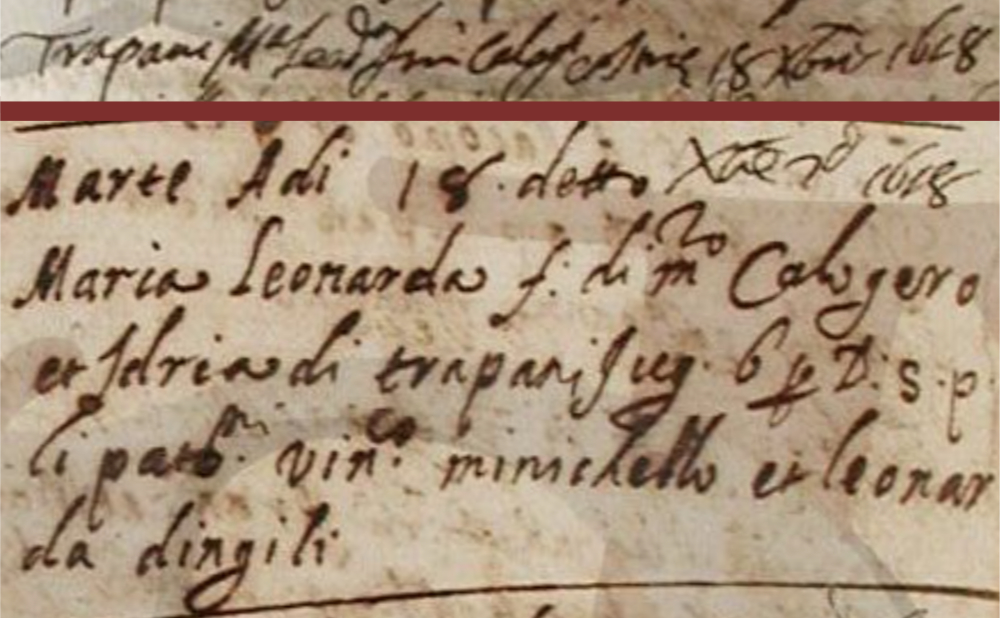 Trapani M.ª Leod.ª di m.º Calog.º 18 Xbre 1618
Marte Adi 18 detto Xbre 1618
Maria Leonarda f: di m.ro Calogero
et Idria di trapani Jug. b per D. s. p
li patri.ni vin.co minichello et leonar
da dingili